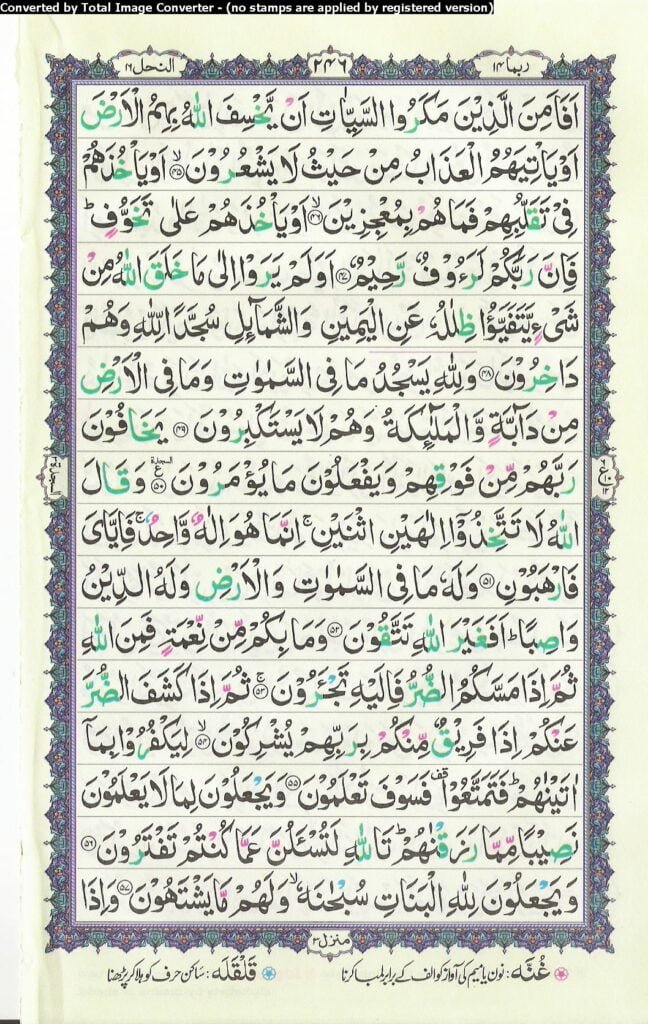 Converted by Total Image Converter - (no stamps are applied by registered version)
ربما ۱۴
۲۴۶
النحل ۱۶
اَفَاَمِنَ الَّذِيْنَ مَكَرُوا السَّيِّاٰتِ اَنْ يَّخْسِفَ اللّٰهُ بِهِمُ الْاَرْضَ
اَوْ يَاْتِيَهُمُ الْعَذَابُ مِنْ حَيْثُ لَا يَشْعُرُوْنَ ۙ‏﴿۴۵﴾ اَوْ يَاْخُذَهُمْ
فِىْ تَقَلُّبِهِمْ فَمَا هُمْ بِمُعْجِزِيْنَ ۙ‏﴿۴۶﴾ اَوْ يَاْخُذَهُمْ عَلٰى تَخَوُّفٍ ؕ
فَاِنَّ رَبَّكُمْ لَرَءُوْفٌ رَّحِيْمٌ ‏﴿۴۷﴾ اَوَلَمْ يَرَوْا اِلٰى مَا خَلَقَ اللّٰهُ مِنْ
شَىْءٍ يَّتَفَيَّؤُا ظِلٰلُهٗ عَنِ الْيَمِيْنِ وَالشَّمَآئِلِ سُجَّدًا لِّلّٰهِ وَهُمْ
دَاخِرُوْنَ ‏﴿۴۸﴾ وَلِلّٰهِ يَسْجُدُ مَا فِى السَّمٰوٰتِ وَمَا فِى الْاَرْضِ
مِنْ دَآبَّةٍ وَّالْمَلٰٓئِكَةُ وَهُمْ لَا يَسْتَكْبِرُوْنَ ‏﴿۴۹﴾ يَخَافُوْنَ
رَبَّهُمْ مِّنْ فَوْقِهِمْ وَيَفْعَلُوْنَ مَا يُؤْمَرُوْنَ ‏﴿۵۰﴾ السجدة ع وَقَالَ
اللّٰهُ لَا تَتَّخِذُوْۤا اِلٰهَيْنِ اثْنَيْنِ ۚ اِنَّمَا هُوَ اِلٰهٌ وَّاحِدٌ ۚ فَاِيَّاىَ
فَارْهَبُوْنِ ‏﴿۵۱﴾ وَلَهٗ مَا فِى السَّمٰوٰتِ وَالْاَرْضِ وَلَهُ الدِّيْنُ
وَاصِبًا ؕ اَفَغَيْرَ اللّٰهِ تَتَّقُوْنَ ‏﴿۵۲﴾ وَمَا بِكُمْ مِّنْ نِّعْمَةٍ فَمِنَ اللّٰهِ
ثُمَّ اِذَا مَسَّكُمُ الضُّرُّ فَاِلَيْهِ تَجْـَٔرُوْنَ ۚ‏﴿۵۳﴾ ثُمَّ اِذَا كَشَفَ الضُّرَّ
عَنْكُمْ اِذَا فَرِيْقٌ مِّنْكُمْ بِرَبِّهِمْ يُشْرِكُوْنَ ۙ‏﴿۵۴﴾ لِيَكْفُرُوْا بِمَاۤ
اٰتَيْنٰهُمْ ؕ فَتَمَتَّعُوْا ۗ فَسَوْفَ تَعْلَمُوْنَ ‏﴿۵۵﴾ وَيَجْعَلُوْنَ لِمَا لَا يَعْلَمُوْنَ
نَصِيْبًا مِّمَّا رَزَقْنٰهُمْ ؕ تَاللّٰهِ لَتُسْـَٔلُنَّ عَمَّا كُنْتُمْ تَفْتَرُوْنَ ‏﴿۵۶﴾
وَيَجْعَلُوْنَ لِلّٰهِ الْبَنٰتِ سُبْحٰنَهٗ ۙ وَلَهُمْ مَّا يَشْتَهُوْنَ ‏﴿۵۷﴾ وَاِذَا
منزل ۳
غُنَّه: نون یا میم کی آواز کو الف کے برابر لمبا کرنا
قَلْقَلَه: ساکن حرف کو ہلا کر پڑھنا